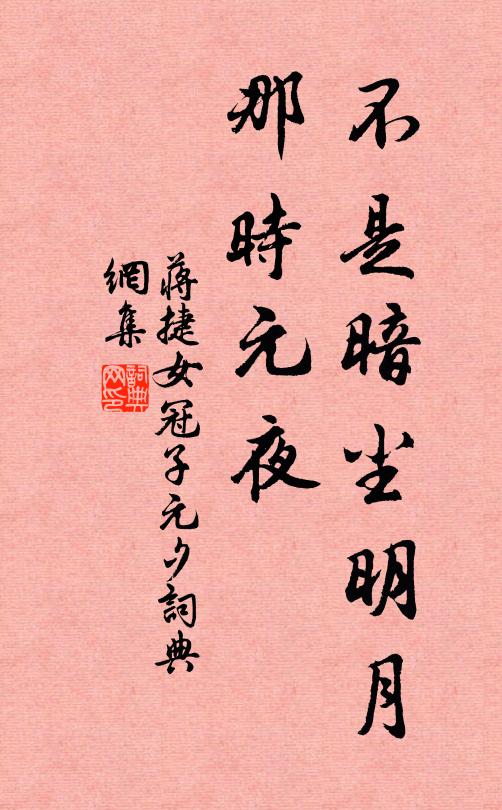 不是暗尘明月
那時元夜
蒋捷女冠子元夕詞典
網集
詞典
网印